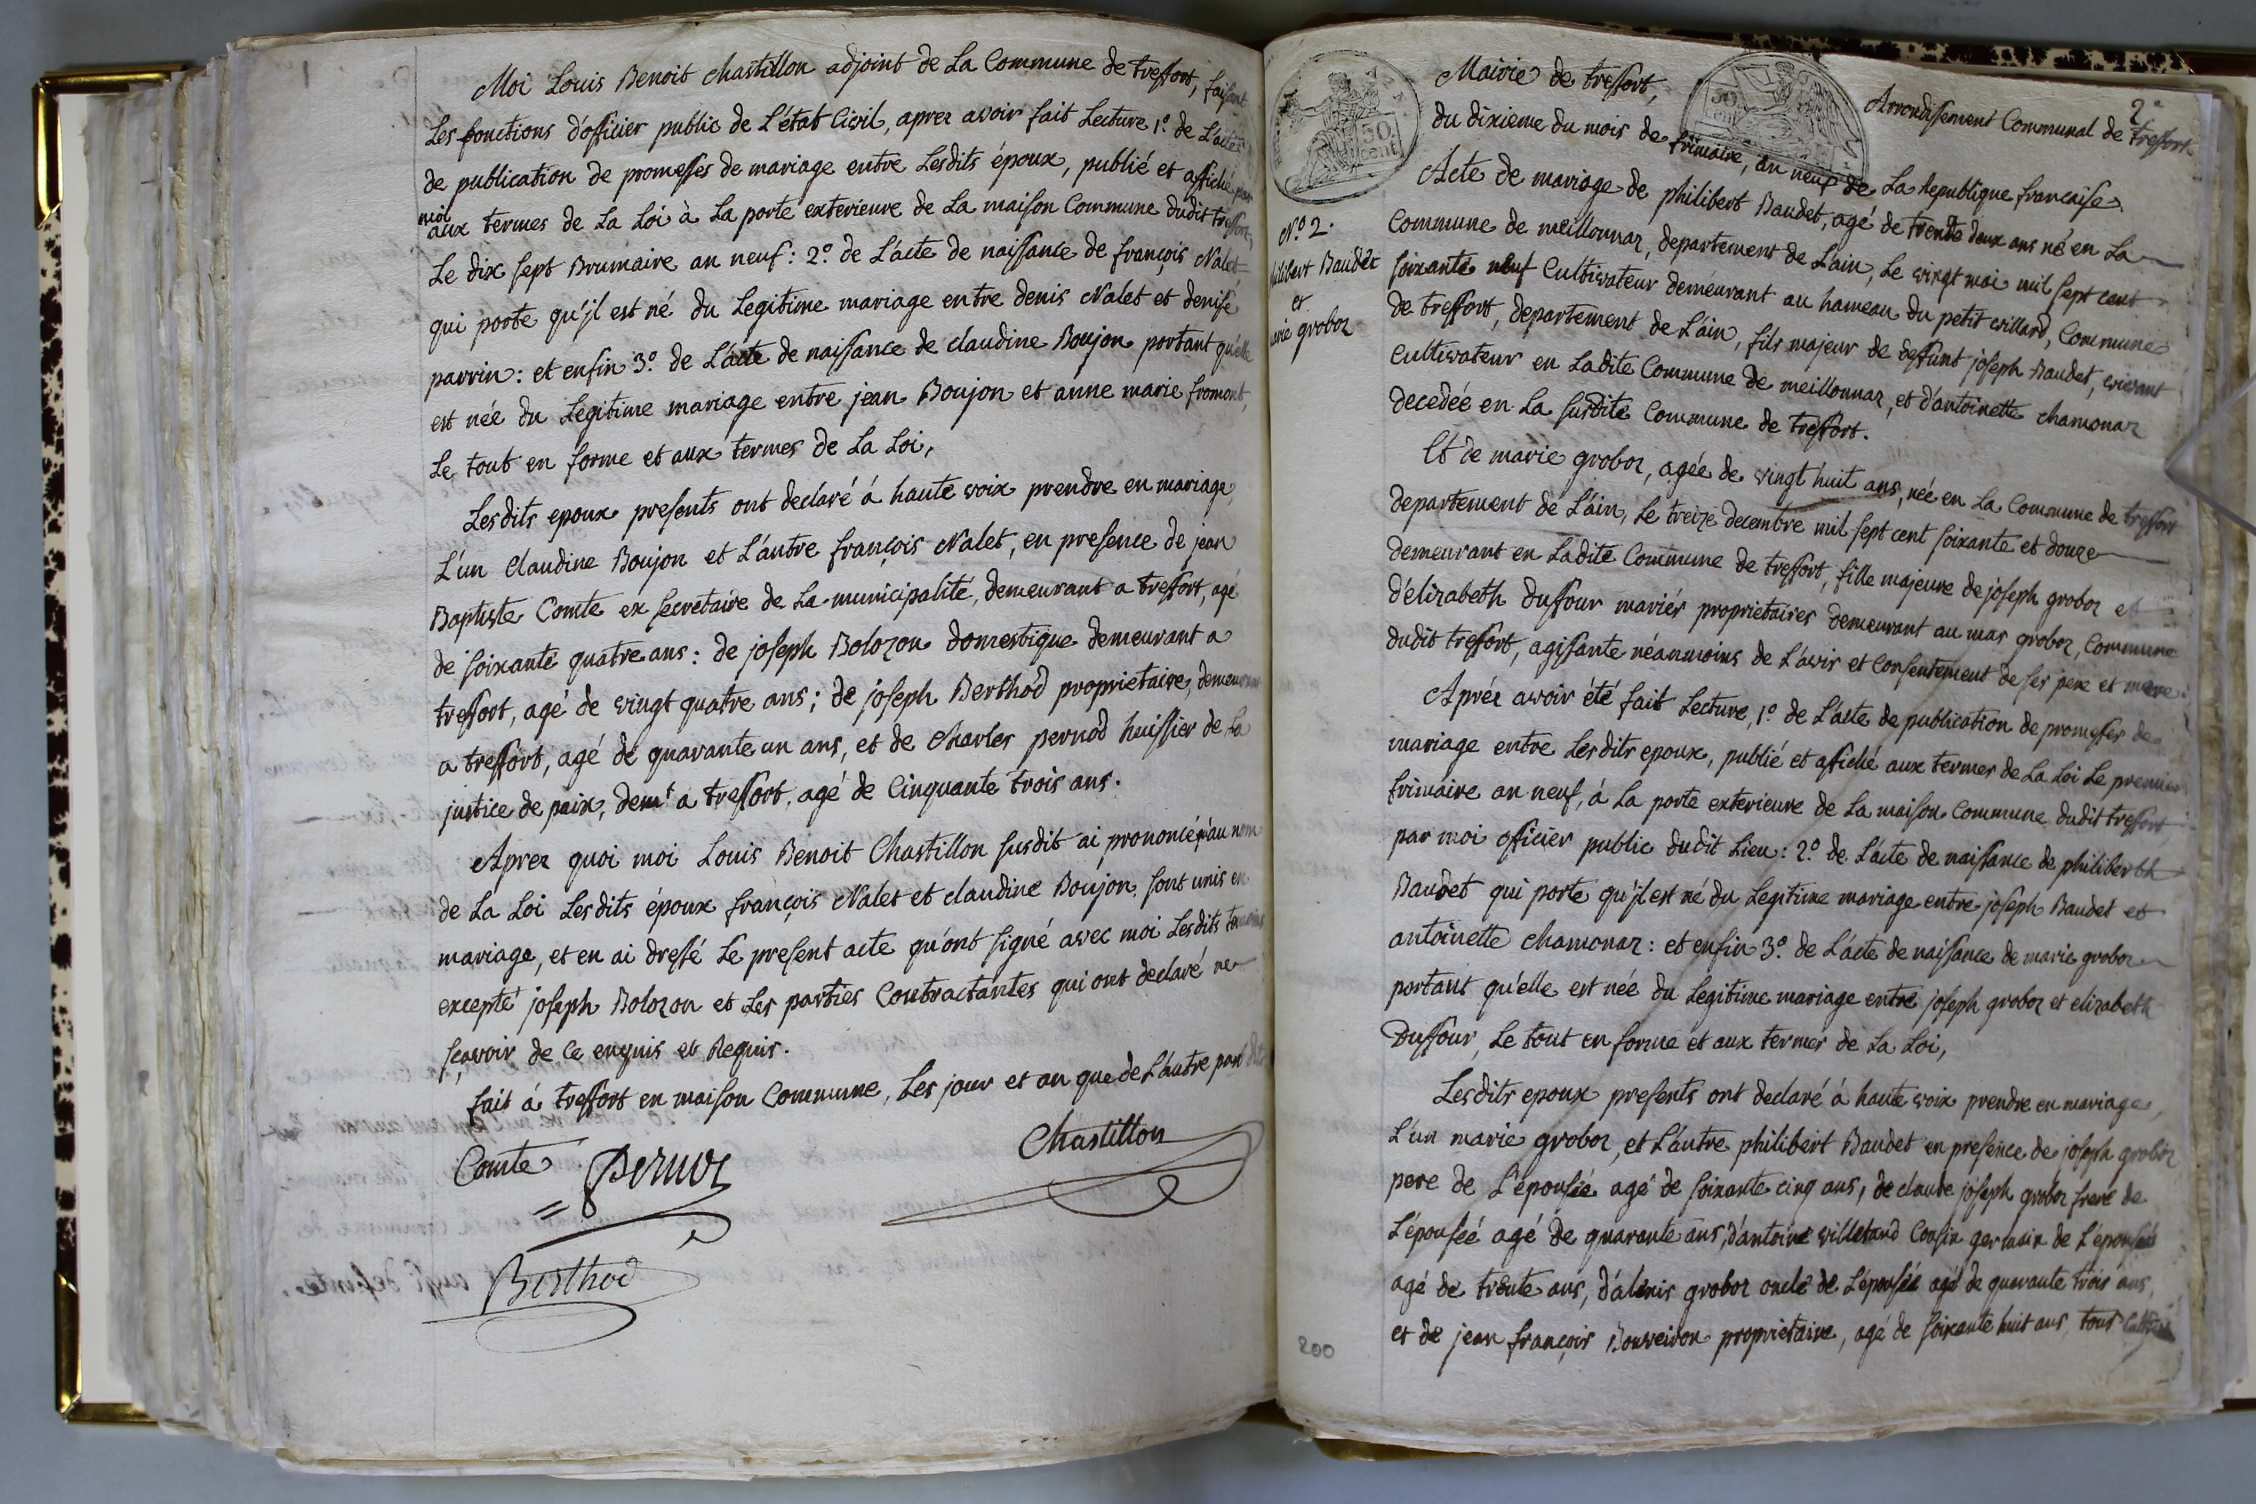 Moi Louis Benoit Chastillon adjoint de La Commune de treffort, faisant
Les fonctions d'officier public de L'état Civil, aprez avoir fait Lecture 1.º de L'acte
de publication de promesses de mariage entre Lesdits époux, publié et affiché par
moi
aux termes de La Loi à La porte exterieure de La maison Commune dudit treffort,
Le dix sept Brumaire an neuf : 2.º de L'acte de naissance de françois Nalet
qui porte qu'jl est né du Legitime mariage entre denis Nalet et denise
parrin : et enfin 3.º de L'acte de naissance de claudine Boujon portant qu'elle
est née du Legitime mariage entre jean Boujon et anne marie fromont,
Le tout en forme et aux termes de La Loi,
Lesdits epoux presents ont declaré à haute voix prendre en mariage,
L'un Claudine Boujon et L'autre françois Nalet, en presence de jean
Baptiste Comte ex secretaire de La municipalité, demeurant a treffort, agé
de soixante quatre ans : de joseph Bolozon domestique demeurant a
treffort, agé de vingt quatre ans ; de joseph Berthod proprietaire, demeurant
a treffort, agé de quarante un ans, et de Charles pernod huissier de La
justice de paix, dem.t a treffort, agé de Cinquante trois ans.
Aprez quoi moi Louis Benoit Chastillon susdit ai prononcé qu'au nom
de La Loi Lesdits époux françois Nalet et claudine Boujon, sont unis en
mariage, et en ai dressé Le present acte qu'ont signé avec moi Lesdits temoins
excepté joseph Bolozon et Les parties Contractantes qui ont declaré ne
sçavoir de Ce enquis et Requis.
fait à treffort en maison Commune, Les jour et an que de L'autre part
Comte Chastillon
Berthod
Mairie de treffort, Arrondissement Communal de treffort
2.e
du dixieme du mois de frimaire, an neuf de La Republique française
Acte de mariage de philibert Baudet, agé de trente deux ans né en La
Nº 2.
Baudet
et
groboz
Commune de meillonnaz, departement de L'ain, Le vingt mai mil sept cent
soixante neuf Cultivateur demeurant au hameau du petit villard, Commune
de treffort, departement de L'ain, fils majeur de deffunt joseph Baudet, vivant
Cultivateur en Ladite Commune de meillonnaz, et d'antoinette chamonaz
decedée en La susdite Commune de treffort.
Et de marie groboz, agée de vingt huit ans, née en La Commune de treffort
departement de L'ain, Le treize decembre mil sept cent soixante et douze
demeurant en Ladite Commune de treffort, fille majeure de joseph groboz et
d'elizabeth duffour mariés proprietaires demeurant au mas groboz, Commune
dudit treffort, agissante néanmoins de L'avis et Consentement de ses pere et mere.
Aprez avoir été fait Lecture, 1.º de L'acte de publication de promesses de
mariage entre Lesdits epoux, publié et affiché aux termes de La Loi Le premier
frimaire an neuf, à La porte exterieure de La maison Commune dudit treffort
par moi officier public dudit Lieu : 2.º de L'acte de naissance de philiberth
Baudet qui porte qu'jl est né du Legitime mariage entre joseph Baudet et
antoinette chamonaz : et enfin 3.º de L'acte de naissance de marie groboz
portant qu'elle est née du Legitime mariage entre joseph groboz et elizabeth
Duffour, Le tout en forme et aux termes de La Loi,
Lesdits epoux presents ont declaré à haute voix prendre en mariage,
L'un marie groboz, et L'autre philibert Baudet en presence de joseph groboz
pere de L'épousée agé de soixante cinq ans, de claude joseph groboz frere de
L'épouséé agé de quarante ans, d'antoine Cousin germain de L'épousée
agé de trente ans, d'alexis groboz oncle de L'épousée agé de quarante trois ans,
et de jean françois Bouveiron proprietaire, agé de soixante huit ans, tous
200